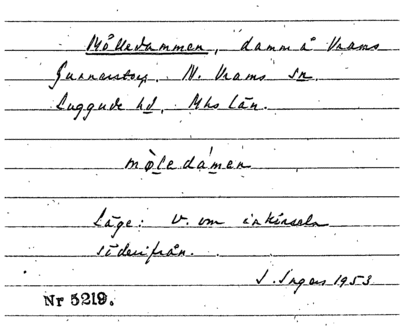 Mölledammen, damm å Vrams
Gunnarstorp. N. Vrams sn.
Luggude hd. Mhs län.
mòledámen
Läge: V. om inkörseln
söderifrån.
I. Ingers 1953
Nr 5219.